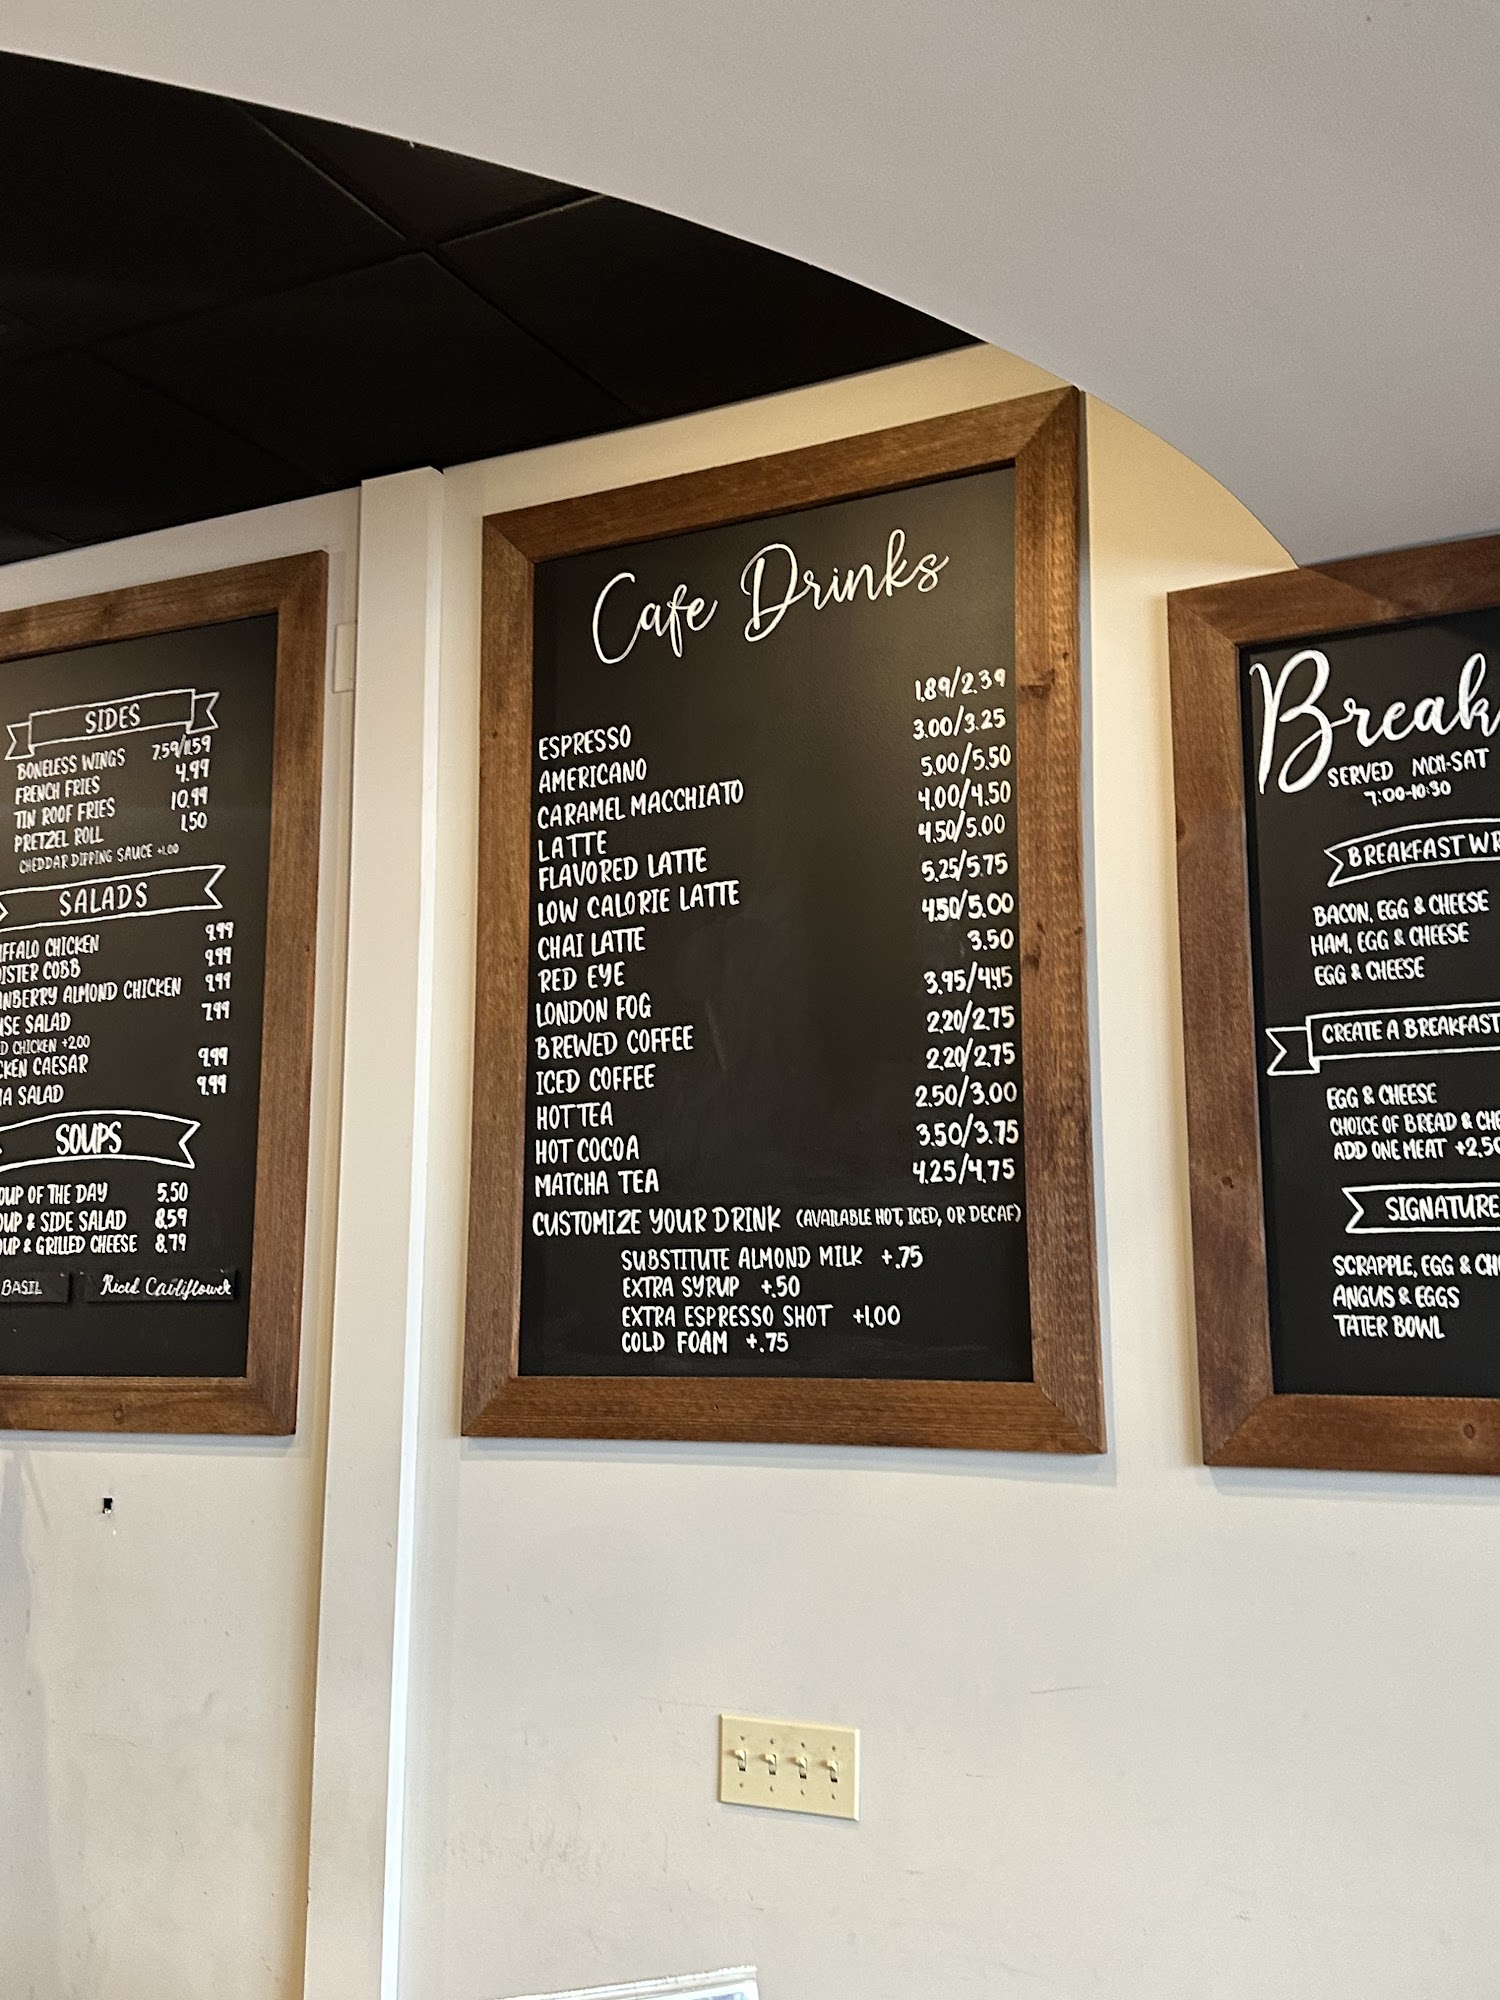 SIDES
BONELESS WINGS 7.59/11.59
FRENCH FRIES 4.99
TIN ROOF FRIES 10.99
PRETZEL ROLL 1.50
CHEDDAR DIPPING SAUCE +1.00
SALADS
FFALO CHICKEN 9.99
ISTER COBB 9.99
NBERRY ALMOND CHICKEN 9.99
SE SALAD 7.99
D CHICKEN +2.00
CKEN CAESAR 9.99
A SALAD 9.99
SOUPS
OUP OF THE DAY 5.50
OUP & SIDE SALAD 8.59
OUP & GRILLED CHEESE 8.79
BASIL Riced Cauliflower
Cafe Drinks
ESPRESSO 1.89/2.39
AMERICANO 3.00/3.25
CARAMEL MACCHIATO 5.00/5.50
LATTE 4.00/4.50
FLAVORED LATTE 4.50/5.00
LOW CALORIE LATTE 5.25/5.75
CHAI LATTE 4.50/5.00
RED EYE 3.50
LONDON FOG 3.95/4.45
BREWED COFFEE 2.20/2.75
ICED COFFEE 2.20/2.75
HOT TEA 2.50/3.00
HOT COCOA 3.50/3.75
MATCHA TEA 4.25/4.75
CUSTOMIZE YOUR DRINK (AVAILABLE HOT, ICED, OR DECAF)
SUBSTITUTE ALMOND MILK +.75
EXTRA SYRUP +.50
EXTRA ESPRESSO SHOT +1.00
COLD FOAM +.75
Break
SERVED MON-SAT
7:00-10:30
BREAKFAST WR
BACON, EGG & CHEESE
HAM, EGG & CHEESE
EGG & CHEESE
CREATE A BREAKFAST
EGG & CHEESE
CHOICE OF BREAD & CHE
ADD ONE MEAT +2.50
SIGNATURE
SCRAPPLE, EGG & CH
ANGUS & EGGS
TATER BOWL